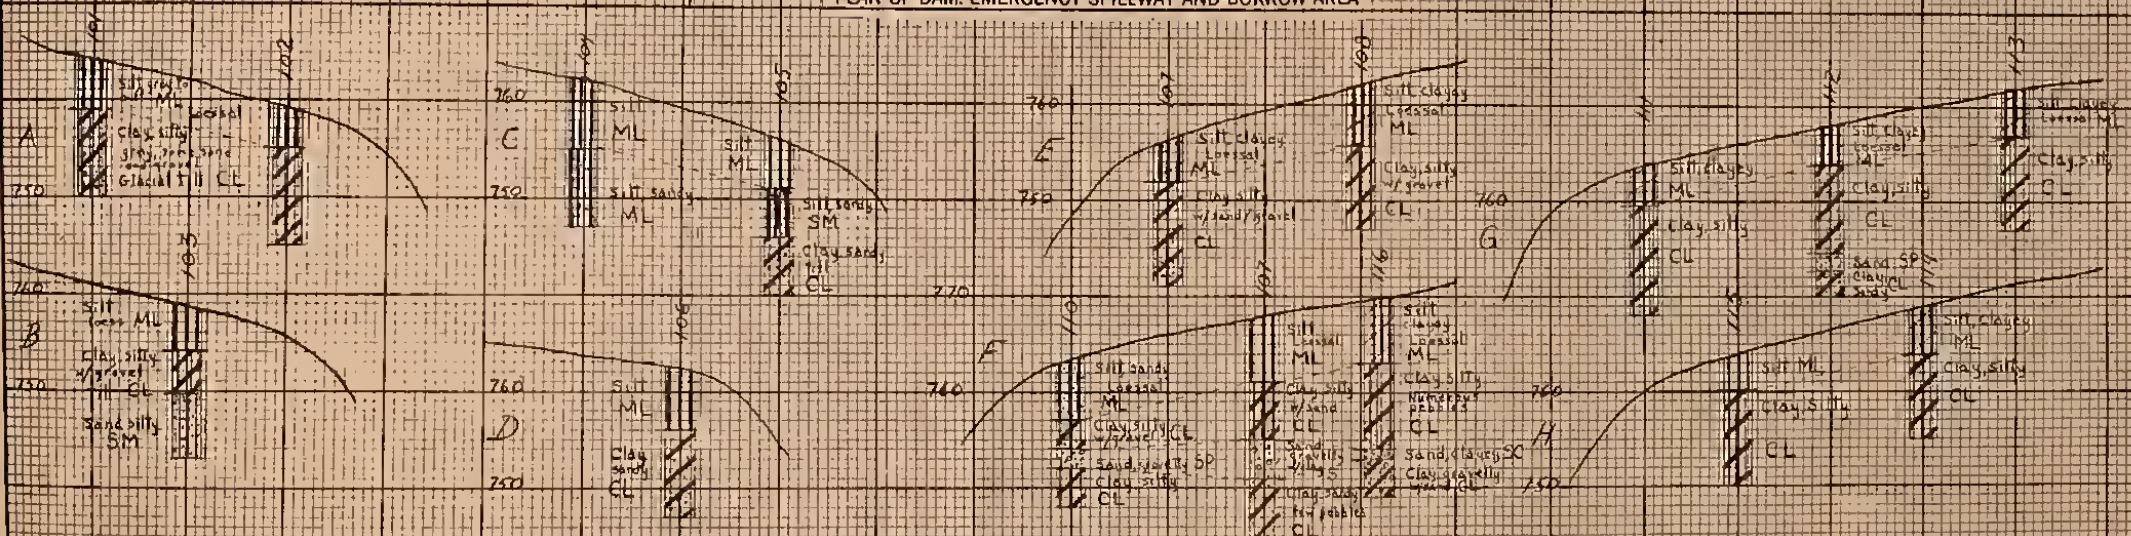 PLAN OF DAM, EMERGENCY SPILLWAY AND BORROW AREA
A
101
Silt gray to
ML
Loessal
Clay, silty
gray, some sand
Glacial till CL
102
750
B
103
760
Silt
loess ML
Clay, silty
w/gravel
till CL
Sand silty
SM
750
C
101
760
Silt
ML
750
Silt, sandy
ML
105
Silt
ML
Silt, sandy
SM
Clay, sandy
till
CL
D
106
760
Silt
ML
Clay
sandy
CL
750
E
760
107
Silt clayey
Loessal
ML
750
Clay silty
w/sand/gravel
CL
108
Silt clayey
Loessal
ML
Clay, silty
w/gravel
CL
F
770
110
760
Silt, sandy
Loessal
ML
Clay, silty
w/gravel CL
Sand, gravelly SP
Clay, silty
CL
107
Silt
Loessal
ML
Clay, silty
w/sand
CL
Sand
gravelly
Clay, sandy
few pebbles
CL
116
Silt
clayey
Loessal
ML
Clay silty
Numerous
pebbles
CL
Sand, clayey SC
Clay gravelly
CL
G
760
111
Silt, clayey
ML
Clay, silty
CL
112
Silt, clayey
Loessal
ML
Clay, silty
CL
Sand SP
Clay CL
Sandy
113
Silt Clayey
Loessal ML
Clay, silty
CL
H
760
750
115
Silt ML
Clay, Silty
CL
114
Silt, Clayey
ML
Clay, silty
CL